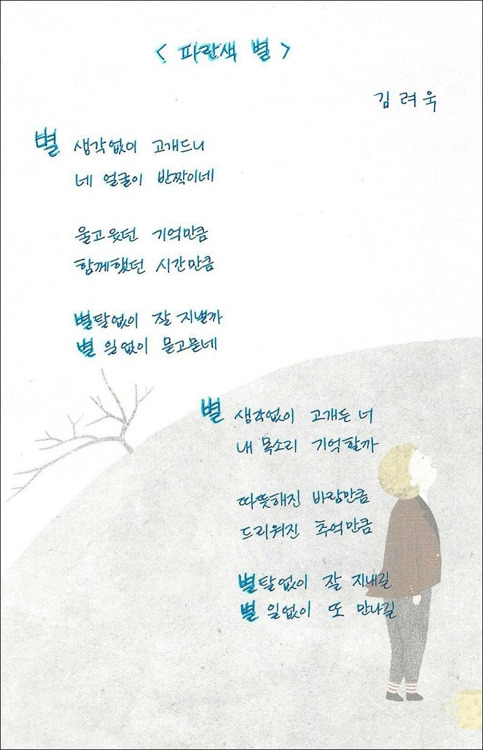 < 파란색 별 >
김려욱
별 생각없이 고개드니
네 얼굴이 반짝이네
울고 웃던 기억만큼
함께했던 시간만큼
별탈없이 잘 지낼까
별 일없이 묻고묻네
별 생각없이 고개든 너
내 목소리 기억할까
따뜻해진 바람만큼
드리워진 추억만큼
별탈없이 잘 지내길
별 일없이 또 만나길